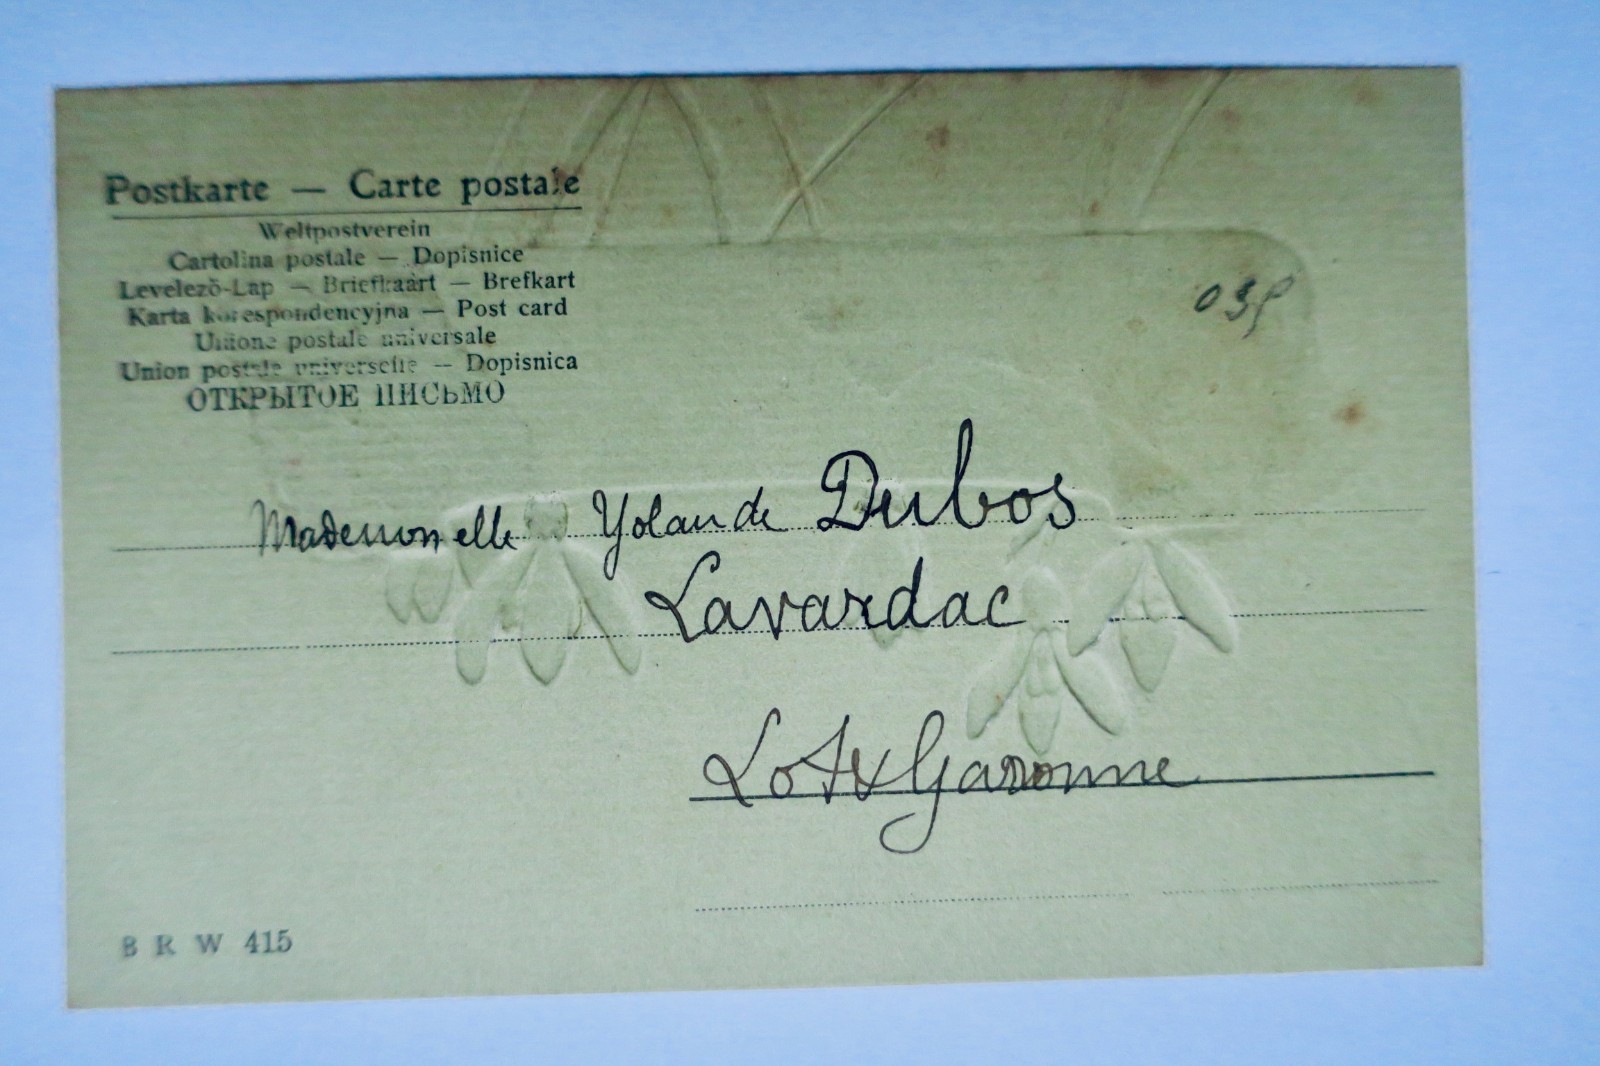 Postkarte — Carte postale
Weltpostverein
Cartolina postale — Dopisnice
Levelező-Lap — Briefkaart — Brefkart
Karta korespondencyjna — Post card
Unione postale universale
Union postale universelle — Dopisnica
ОТКРЫТОЕ ПИСЬМО
Mademoiselle Yolande Dubos
Lavardac
Lot & Garonne
B R W 415